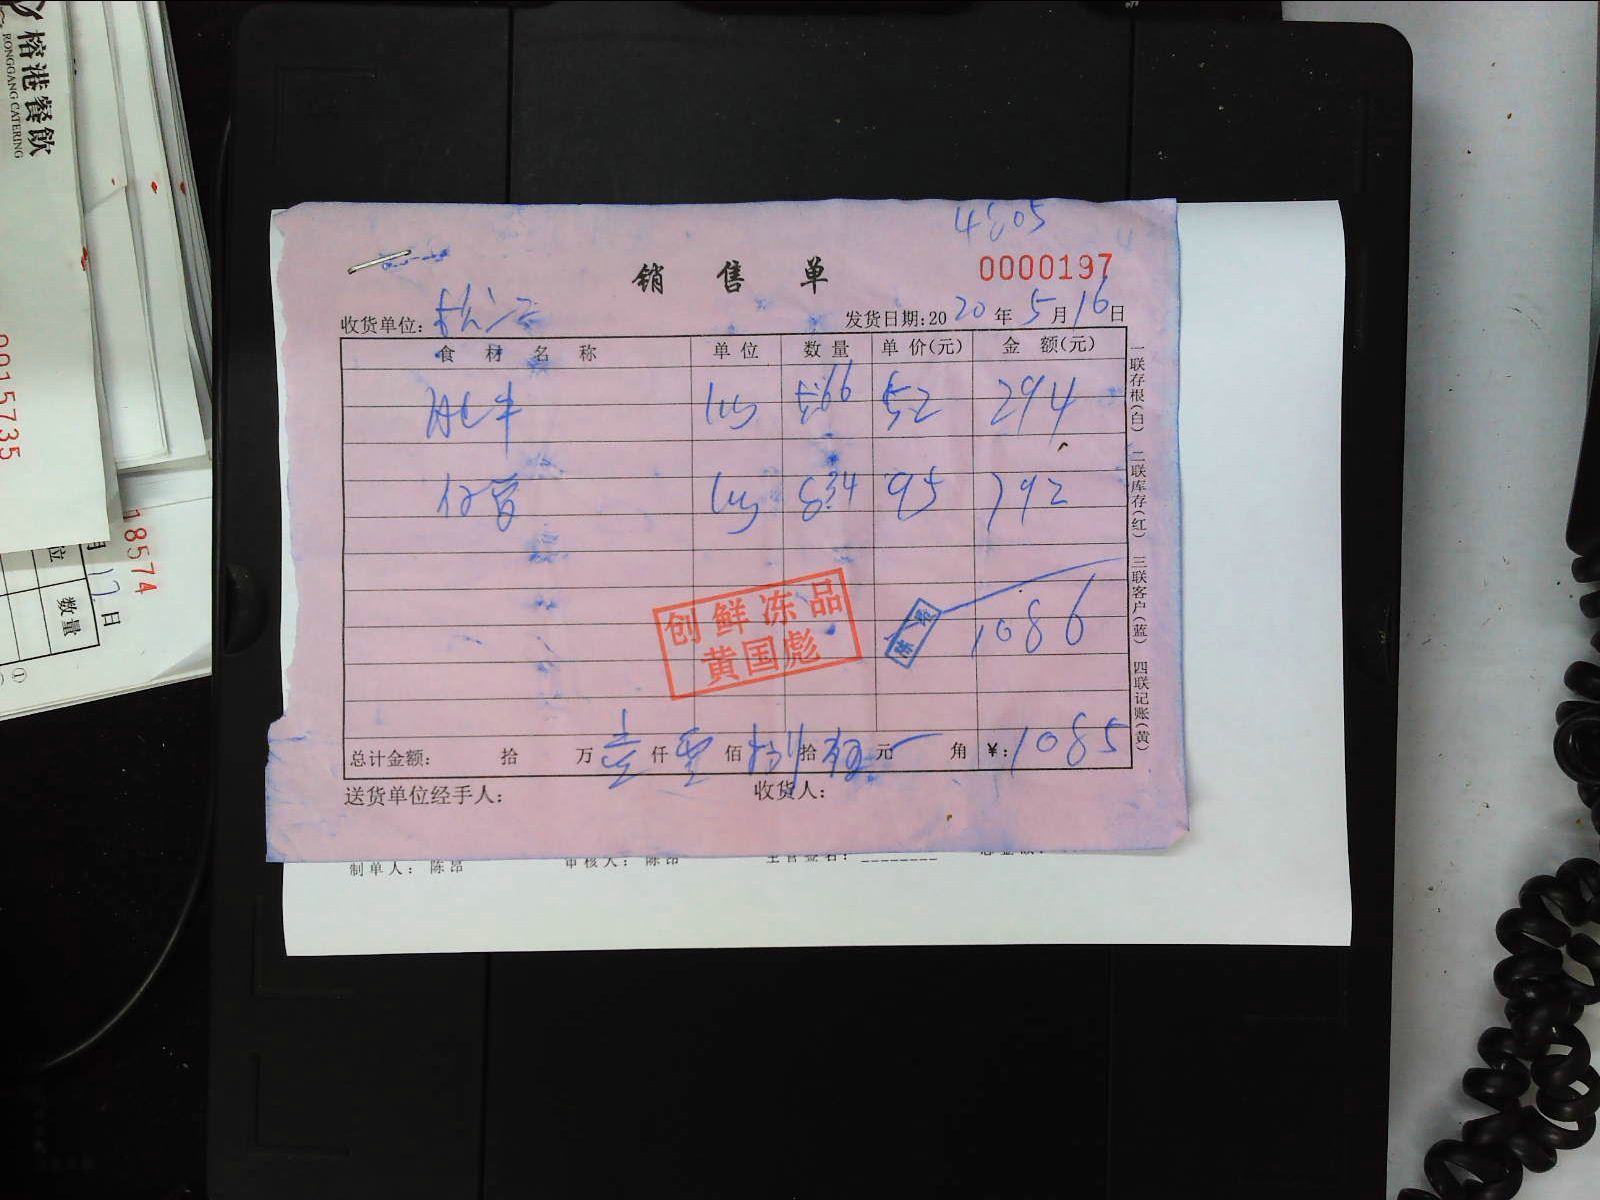 榕港餐飲
RONGGANG CATERING
0015735
18574
17日
位 数量
①
4805
销 售 单
0000197
收货单位: 松江
发货日期:2020年5月16日
食 材 名 称 单 位 数 量 单 价(元) 金 额(元)
肥牛 5.66 52 294
8.34 95 792
创鲜冻品
黄国彪
1086
总计金额: 拾 万 壹 仟 零 佰 捌 拾 元 角 ¥:1085
送货单位经手人: 收货人:
一联存根(白) 二联库存(红) 三联客户(蓝) 四联记账(黄)
制单人: 陈昂 审核人: 陈昂 主管签名: